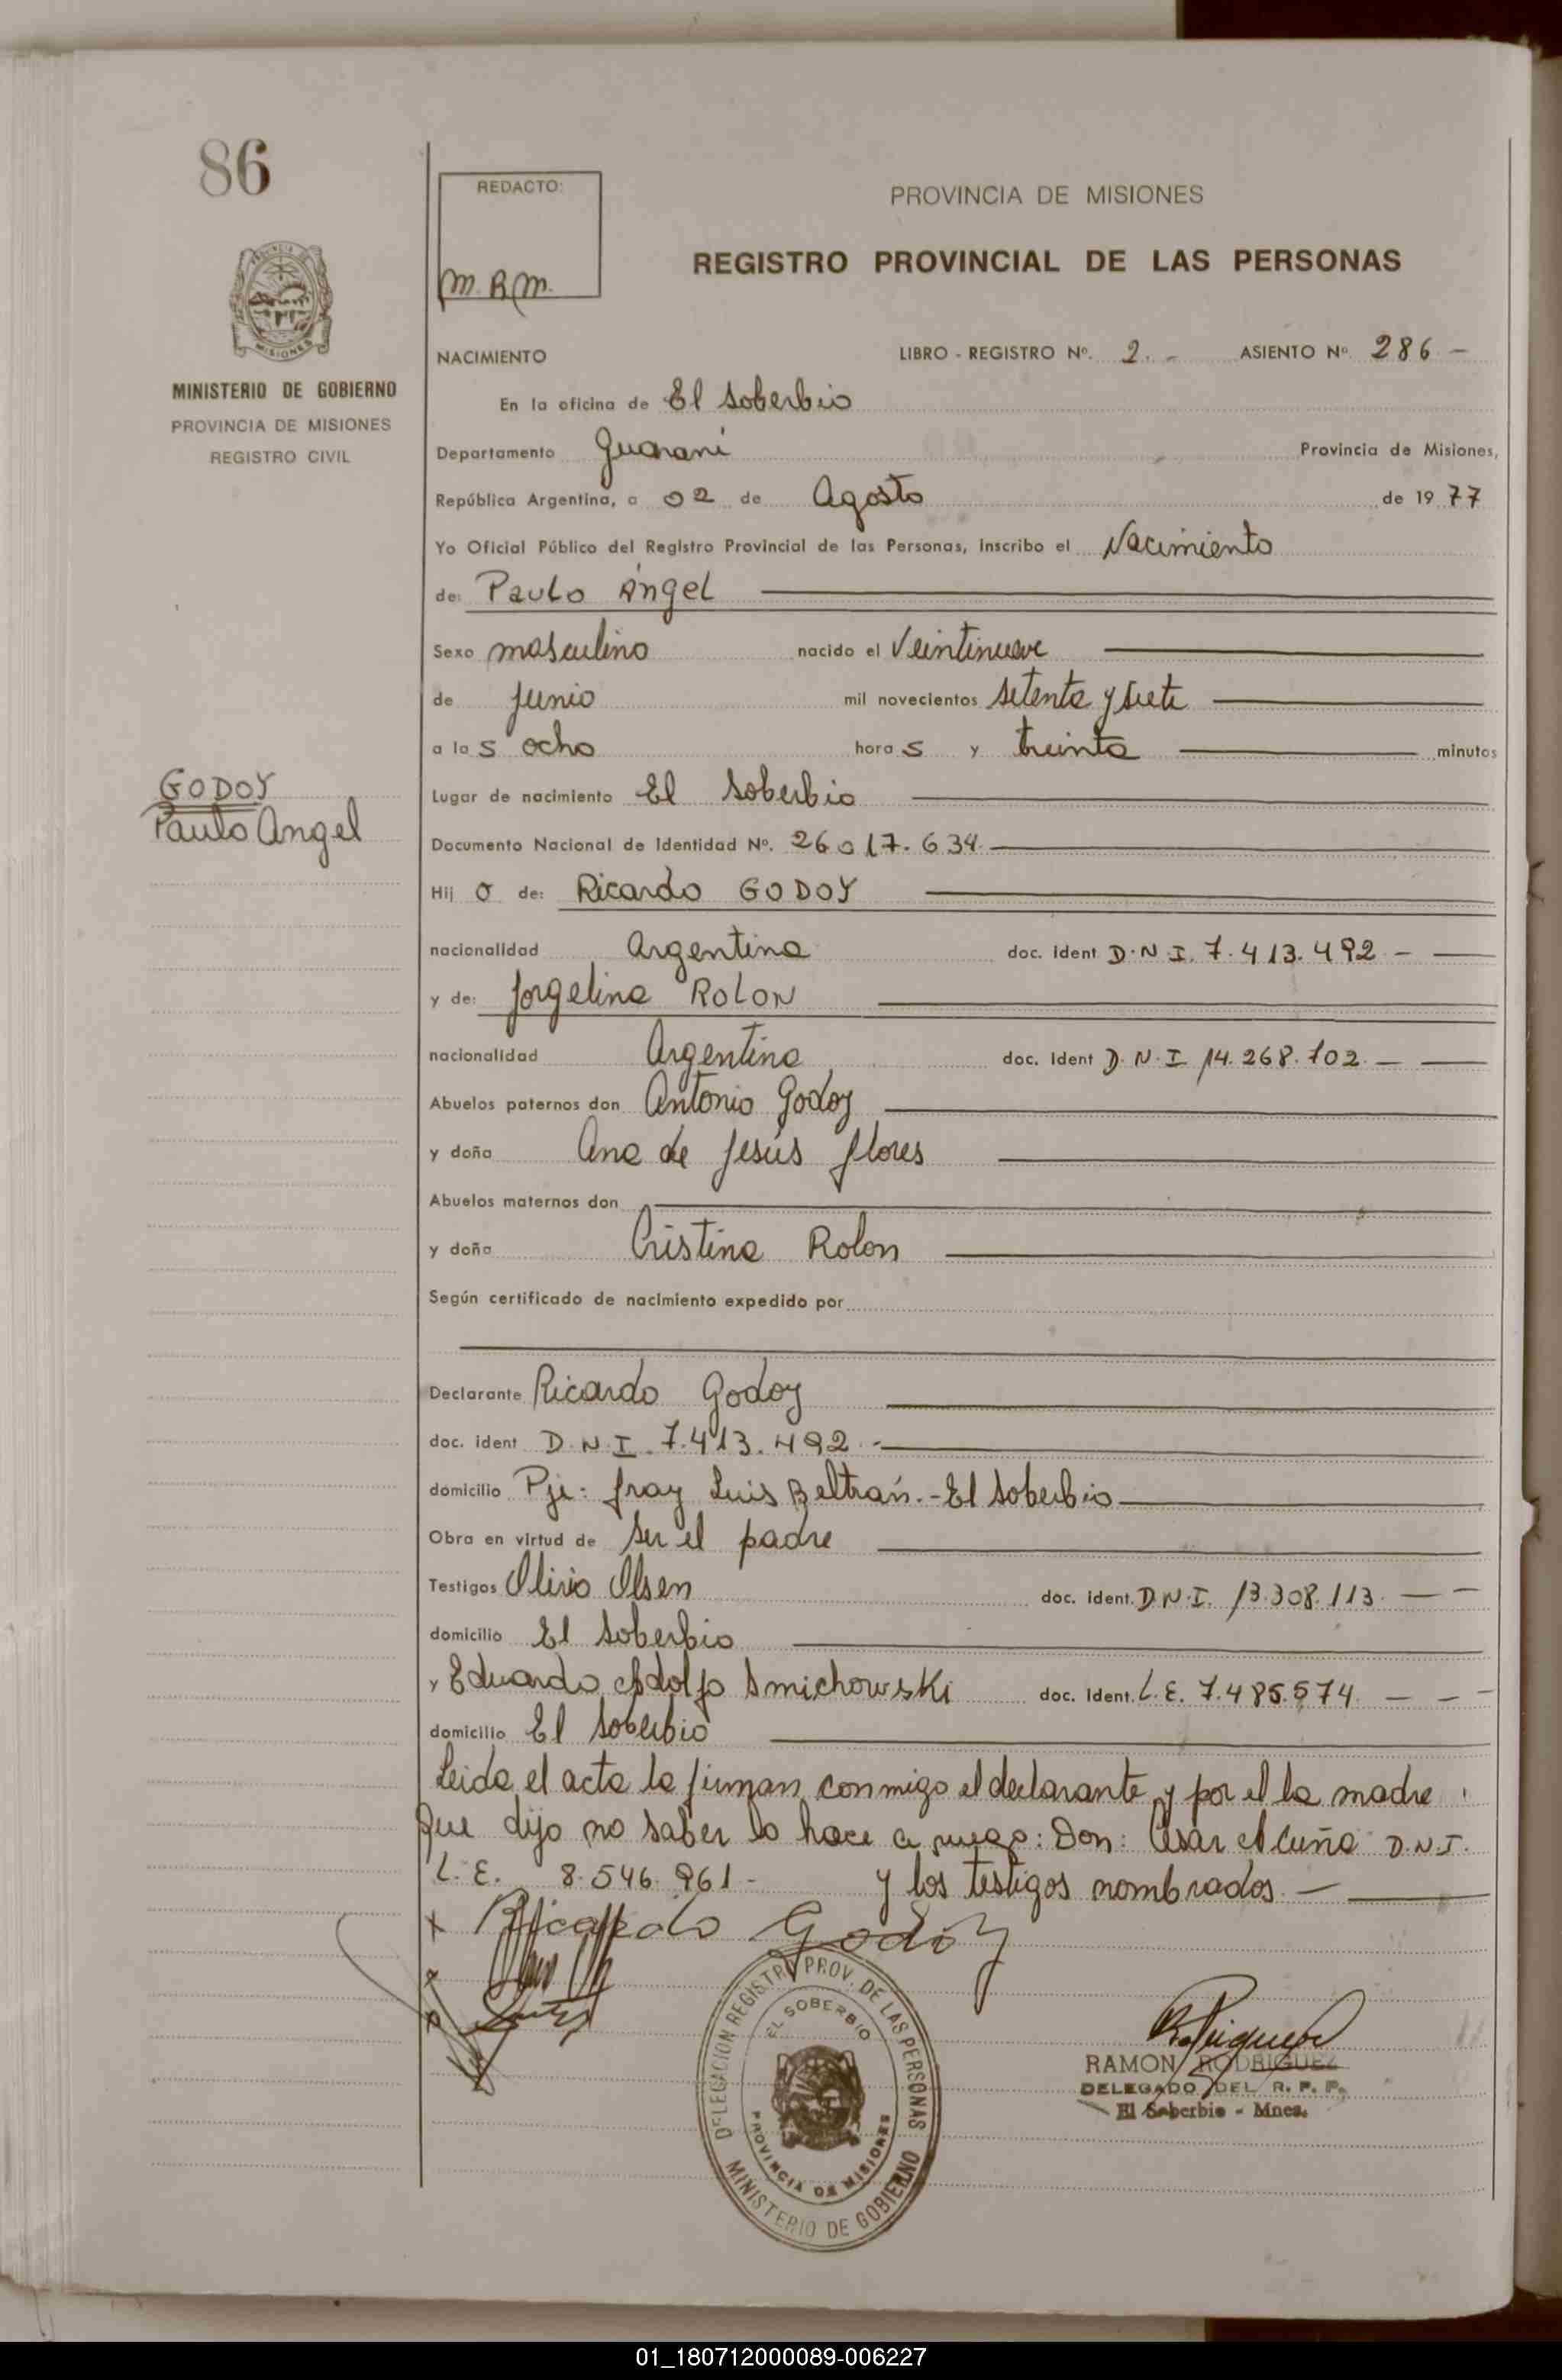 86
REDACTO:
M. R. M.
PROVINCIA DE MISIONES
REGISTRO PROVINCIAL DE LAS PERSONAS
PROVINCIA DE MISIONES
MINISTERIO DE GOBIERNO
PROVINCIA DE MISIONES
REGISTRO CIVIL
NACIMIENTO LIBRO - REGISTRO Nº. 2. - ASIENTO Nº 286 -
En la oficina de El Soberbio
Departamento Guarani Provincia de Misiones,
República Argentina, a 02 de Agosto de 1977
Yo Oficial Público del Registro Provincial de las Personas, inscribo el Nacimiento
de: Paulo Angel
Sexo masculino nacido el Veintinueve
de Junio mil novecientos setenta y siete
a las ocho horas y treinta minutos
GODOY
Paulo Angel
Lugar de nacimiento El Soberbio
Documento Nacional de Identidad Nº. 26017.634.
Hijo de: Ricardo GODOY
nacionalidad Argentina doc. ident D.N.I. 7.413.492 -
y de: Jorgelina ROLON
nacionalidad Argentina doc. ident D.N.I 14.268.702 -
Abuelos paternos don Antonio Godoy
y doña Ana de Jesús Flores
Abuelos maternos don
y doña Cristina Rolon
Según certificado de nacimiento expedido por
Declarante Ricardo Godoy
doc. ident D.N.I. 7.413.492 -
domicilio Pje: Fray Luis Beltrán. - El Soberbio
Obra en virtud de ser el padre
Testigos Olirio Olsen doc. ident. D.N.I. 13.308.113 -
domicilio El Soberbio
y Eduardo Adolfo Smichowski doc. ident. L.E. 7.485.574. -
domicilio El Soberbio
Leida el acta la firman conmigo el declarante y por el la madre
que dijo no saber lo hace a ruego: Don: Cesar Acuña D.N.I.
L.E. 8.546.961 - y los testigos nombrados. -
Ricardo Godoy
DELEGACION REGISTRO PROV. DE LAS PERSONAS
EL SOBERBIO
PROVINCIA DE MISIONES
MINISTERIO DE GOBIERNO
RAMON RODRIGUEZ
DELEGADO DEL R. P. P.
El Soberbio - Mnes.
01_180712000089-006227